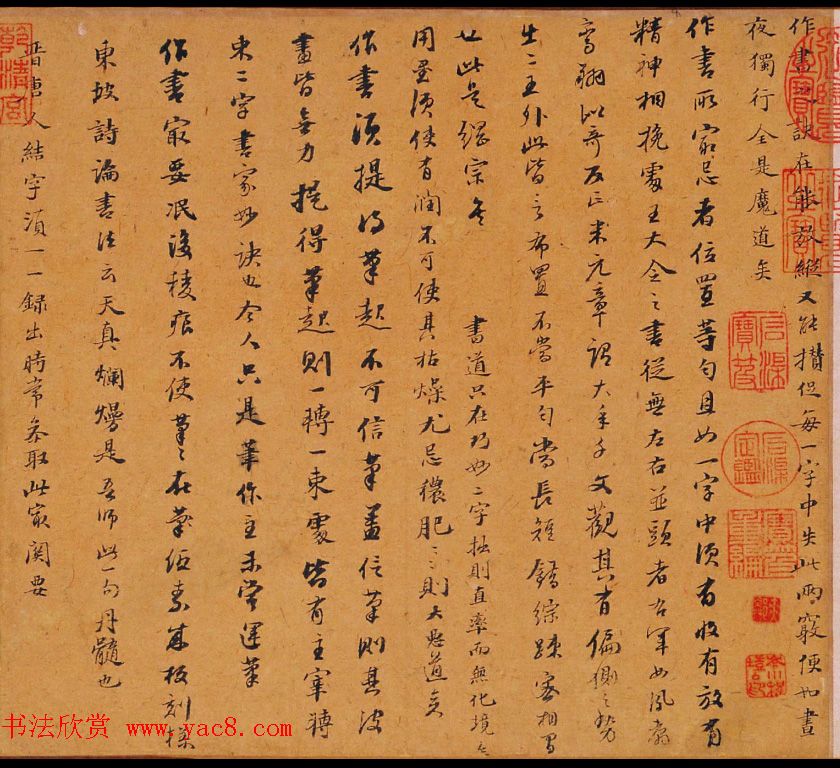 作書之訣在能放縱又能攢促每一字中失此兩竅便如晝
夜獨行全是魔道矣
作書所最忌者位置等勻且如一字中須有收有放有
精神相挽處王大令之書從無左右並頭者右軍如鳳翥
鸞翔似奇反正米元章謂大年千文觀其有偏側之勢
出二王外此皆言布置不當平勻當長短錯綜疎密相間
也此是綱宗矣 書道只在巧妙二字拙則直率而無化境矣
用墨須使有潤不可使其枯燥尤忌穠肥〻則大惡道矣
作書須提得筆起不可信筆蓋信筆則其波
畫皆無力提得筆起則一轉一束處皆有主宰轉
束二字書家妙訣也今人只是筆作主未嘗運筆
作書最要泯沒稜痕不使筆〻在紙素成板刻樣
東坡詩論書法云天真爛熳是吾師此一句丹髓也
晉唐人結字須一一錄出時常參取此最關要
乾清宮
书法欣赏 www.yac8.com